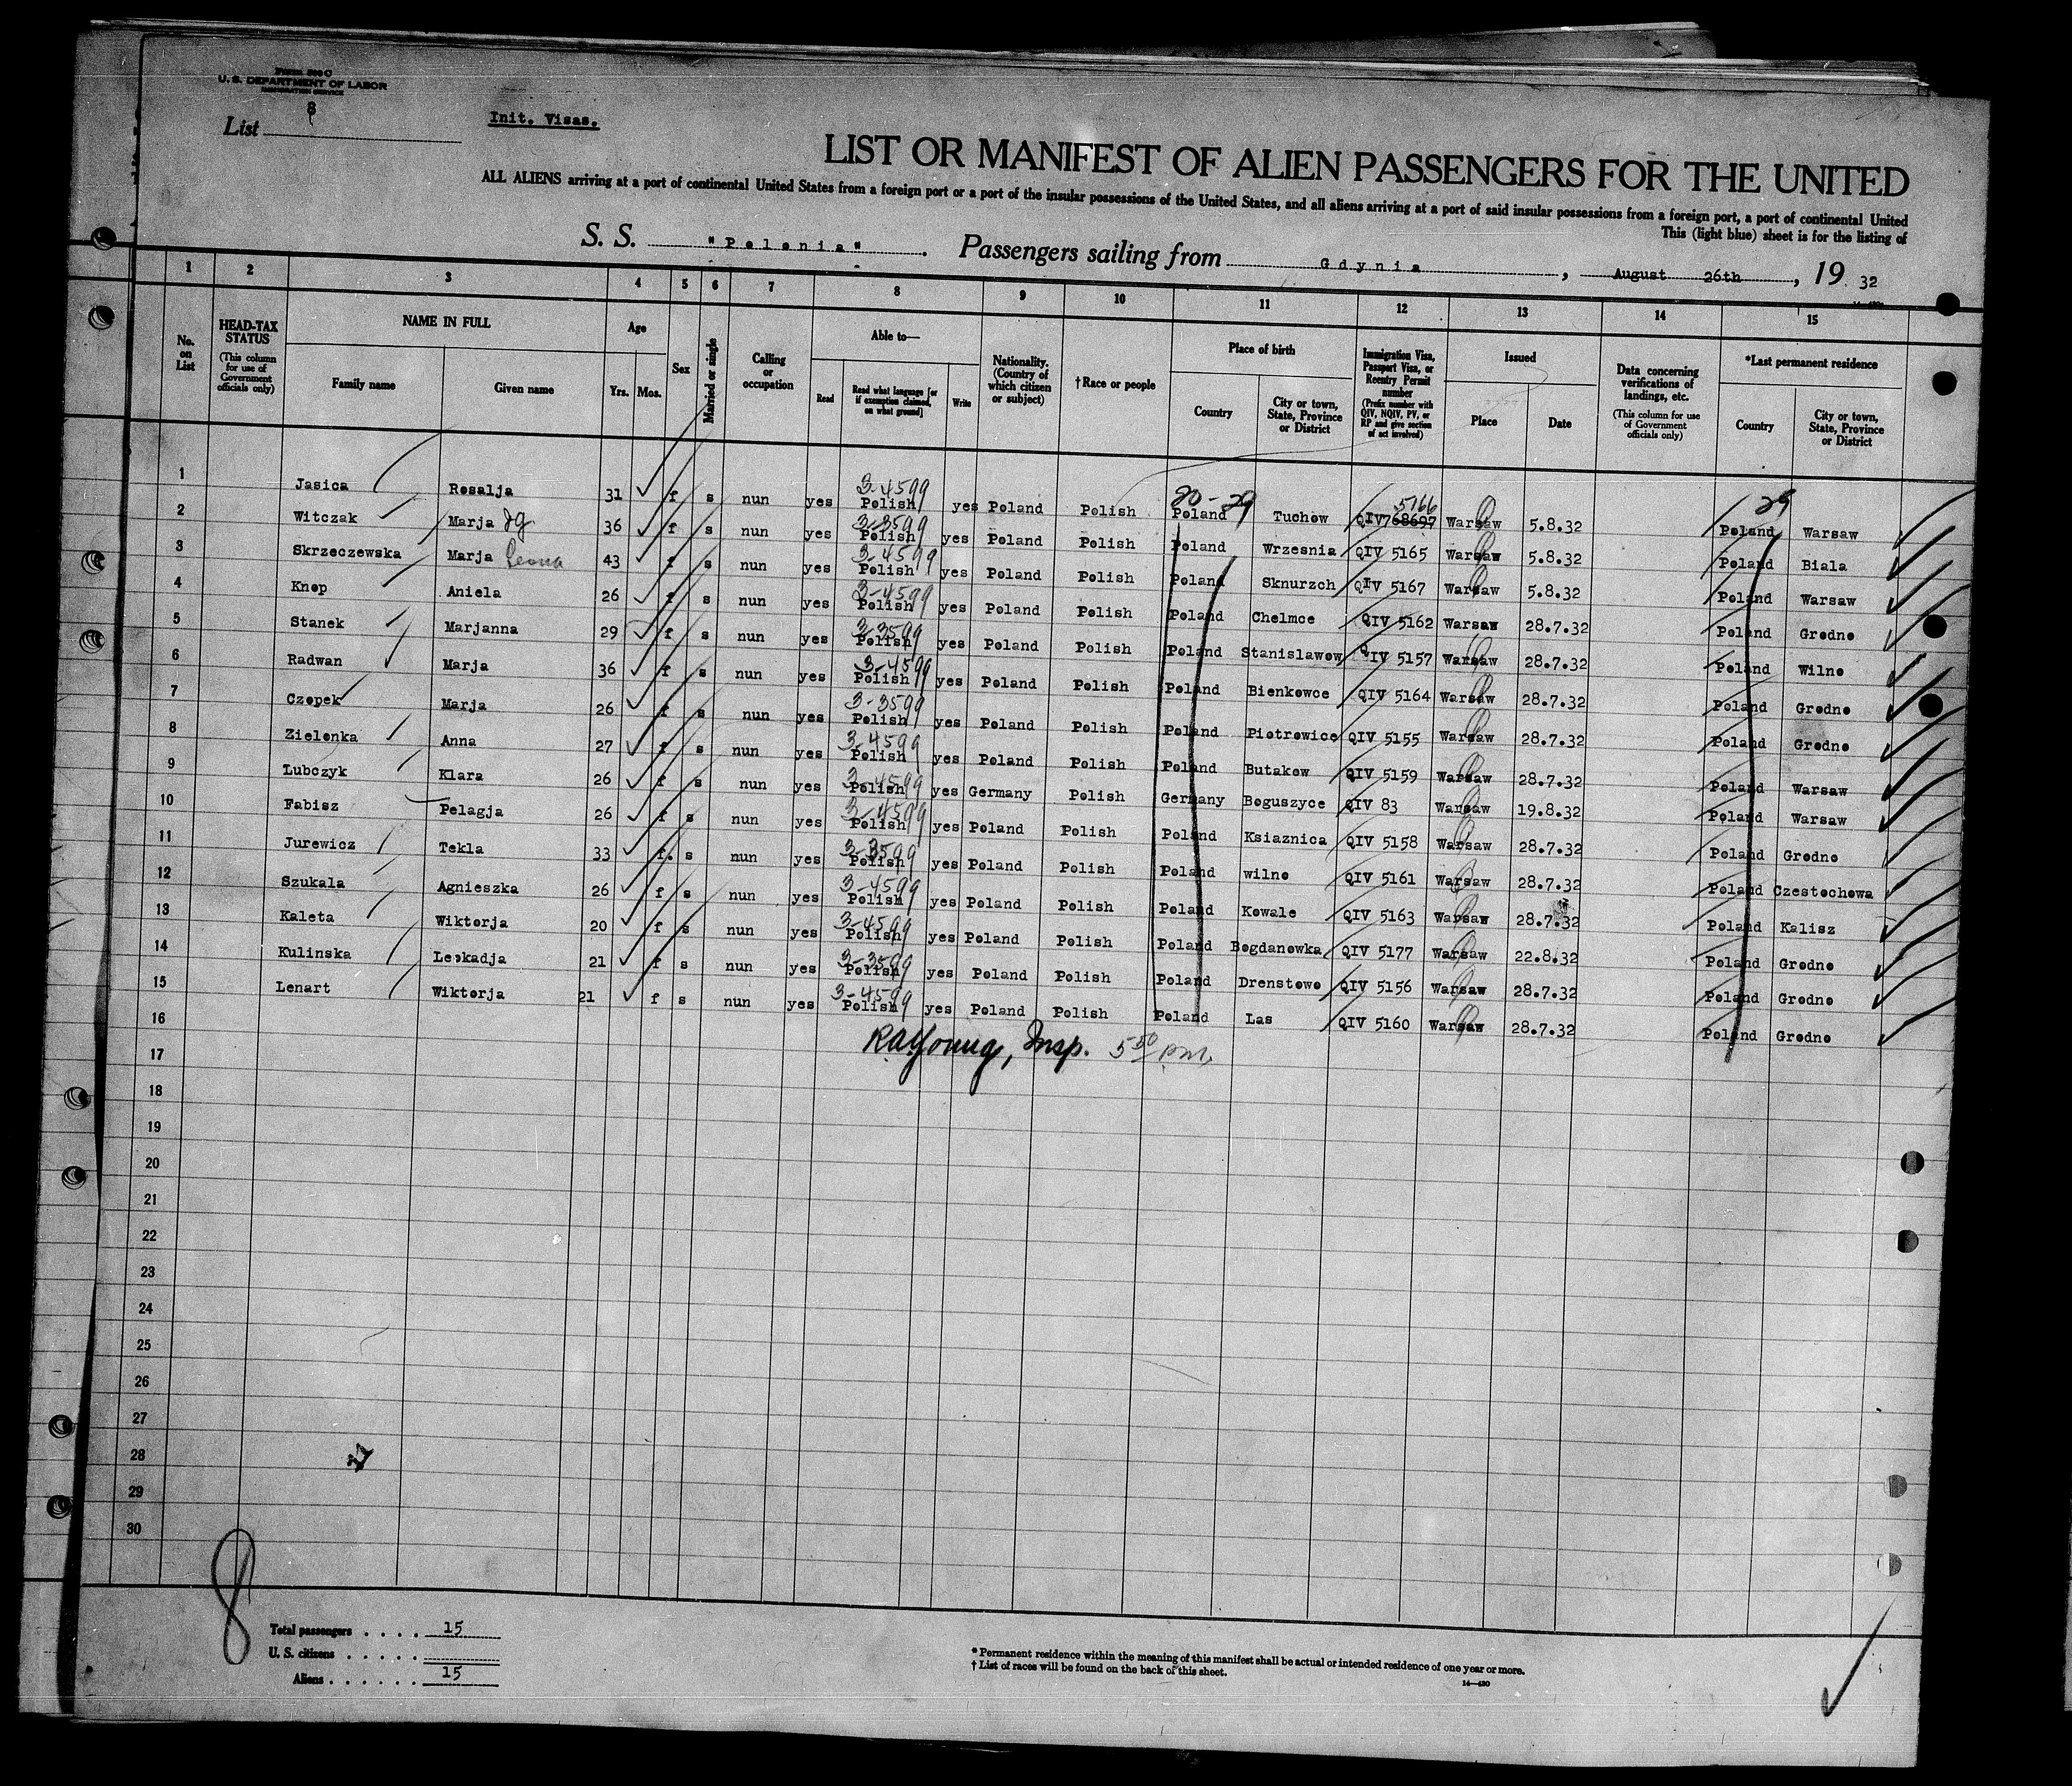 Form 500 C
U. S. DEPARTMENT OF LABOR
IMMIGRATION SERVICE
List 8
Init. Visas.
LIST OR MANIFEST OF ALIEN PASSENGERS FOR THE UNITED
ALL ALIENS arriving at a port of continental United States from a foreign port or a port of the insular possessions of the United States, and all aliens arriving at a port of said insular possessions from a foreign port, a port of continental United
This (light blue) sheet is for the listing of
S. S. "Polonia". Passengers sailing from Gdynia, August 26th, 19 32
1 2 3 4 5 6 7 8 9 10 11 12 13 14 15
No. on List
HEAD-TAX STATUS (This column for use of Government officials only)
NAME IN FULL
Family name
Given name
Age
Yrs. Mos.
Sex
Married or single
Calling or occupation
Able to—
Read
Read what language [or if exemption claimed, on what ground]
Write
Nationality. (Country of which citizen or subject)
†Race or people
Place of birth
Country
City or town, State, Province or District
Immigration Visa, Passport Visa, or Reentry Permit number (Prefix number with QIV, NQIV, PV, or RP and give section of act involved)
Issued
Place
Date
Data concerning verifications of landings, etc. (This column for use of Government officials only)
*Last permanent residence
Country
City or town, State, Province or District
3-4599 20-29 5166 29
1 Jasica Rosalja 31 f s nun yes Polish yes Poland Polish Poland Tuchow QIV768697 Warsaw 5.8.32 Poland Warsaw
3-3599
2 Witczak Marja 36 f s nun yes Polish yes Poland Polish Poland Wrzesnia QIV 5165 Warsaw 5.8.32 Poland Biala
3-4599
3 Skrzeczewska Marja Leona 43 f s nun yes Polish yes Poland Polish Poland Sknurzch QIV 5167 Warsaw 5.8.32 Poland Warsaw
3-4599
4 Knop Aniela 26 f s nun yes Polish yes Poland Polish Poland Chelmce QIV 5162 Warsaw 28.7.32 Poland Grodno
3-3599
5 Stanek Marjanna 29 f s nun yes Polish yes Poland Polish Poland Stanislawow QIV 5157 Warsaw 28.7.32 Poland Wilno
3-4599
6 Radwan Marja 36 f s nun yes Polish yes Poland Polish Poland Bienkowce QIV 5164 Warsaw 28.7.32 Poland Grodno
3-3599
7 Czopek Marja 26 f s nun yes Polish yes Poland Polish Poland Piotrowice QIV 5155 Warsaw 28.7.32 Poland Grodno
3-4599
8 Zielonka Anna 27 f s nun yes Polish yes Poland Polish Poland Butakow QIV 5159 Warsaw 28.7.32 Poland Warsaw
3-4599
9 Lubczyk Klara 26 f s nun yes Polish yes Germany Polish Germany Boguszyce QIV 83 Warsaw 19.8.32 Poland Warsaw
3-4599
10 Fabisz Pelagja 26 f s nun yes Polish yes Poland Polish Poland Ksiaznica QIV 5158 Warsaw 28.7.32 Poland Grodno
3-3599
11 Jurewicz Tekla 33 f. s nun yes Polish yes Poland Polish Poland wilno QIV 5161 Warsaw 28.7.32 Poland Czestochowa
3-4599
12 Szukala Agnieszka 26 f s nun yes Polish yes Poland Polish Poland Kowale QIV 5163 Warsaw 28.7.32 Poland Kalisz
3-4599
13 Kaleta Wiktorja 20 f s nun yes Polish yes Poland Polish Poland Bogdanowka QIV 5177 Warsaw 22.8.32 Poland Grodno
3-3599
14 Kulinska Leokadja 21 f s nun yes Polish yes Poland Polish Poland Drenstowo QIV 5156 Warsaw 28.7.32 Poland Grodno
3-4599
15 Lenart Wiktorja 21 f s nun yes Polish yes Poland Polish Poland Las QIV 5160 Warsaw 28.7.32 Poland Grodno
16
RAYoung, Insp. 5 50 pm.
17
18
19
20
21
22
23
24
25
26
27
28
29
30
8
Total passengers . . . . 15
U. S. citizens . . . . .
Aliens . . . . . . 15
* Permanent residence within the meaning of this manifest shall be actual or intended residence of one year or more.
† List of races will be found on the back of this sheet.
14—430